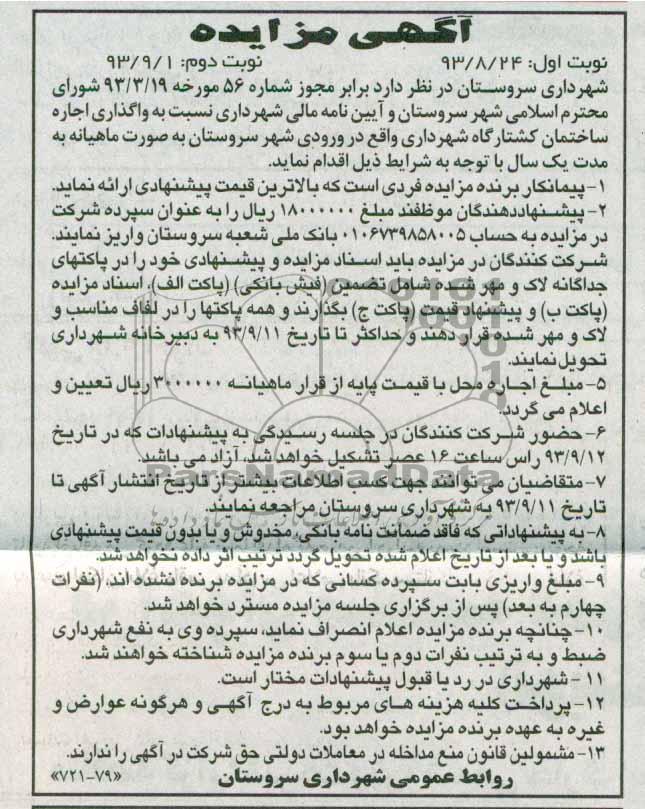 آگهی مزایده
نوبت اول: ۹۳/۸/۲۴ نوبت دوم: ۹۳/۹/۱
شهرداری سروستان در نظر دارد برابر مجوز شماره ۵۶ مورخه ۹۳/۳/۱۹ شورای
محترم اسلامی شهر سروستان و آیین نامه مالی شهرداری نسبت به واگذاری اجاره
ساختمان کشتارگاه شهرداری واقع در ورودی شهر سروستان به صورت ماهیانه به
مدت یک سال با توجه به شرایط ذیل اقدام نماید.
۱- پیمانکار برنده مزایده فردی است که بالاترین قیمت پیشنهادی ارائه نماید.
۲- پیشنهاددهندگان موظفند مبلغ ۱۸۰۰۰۰۰۰ ریال را به عنوان سپرده شرکت
در مزایده به حساب ۰۱۰۶۷۳۹۸۵۸۰۰۵ بانک ملی شعبه سروستان واریز نمایند.
شرکت کنندگان در مزایده باید اسناد مزایده و پیشنهادی خود را در پاکتهای
جداگانه لاک و مهر شده شامل تضمین (فیش بانکی) (پاکت الف)، اسناد مزایده
(پاکت ب) و پیشنهاد قیمت (پاکت ج) بگذارند و همه پاکتها را در لفاف مناسب و
لاک و مهر شده قرار دهند و حداکثر تا تاریخ ۹۳/۹/۱۱ به دبیرخانه شهرداری
تحویل نمایند.
۵- مبلغ اجاره محل با قیمت پایه از قرار ماهیانه ۳۰۰۰۰۰۰ ریال تعیین و
اعلام می گردد.
۶- حضور شرکت کنندگان در جلسه رسیدگی به پیشنهادات که در تاریخ
۹۳/۹/۱۲ راس ساعت ۱۶ عصر تشکیل خواهد شد، آزاد می باشد.
ParsNamadData
۷- متقاضیان می توانند جهت کسب اطلاعات بیشتر از تاریخ انتشار آگهی تا
تاریخ ۹۳/۹/۱۱ به شهرداری سروستان مراجعه نمایند.
۸- به پیشنهاداتی که فاقد ضمانت نامه بانکی، مخدوش و یا بدون قیمت پیشنهادی
باشد و یا بعد از تاریخ اعلام شده تحویل گردد ترتیب اثر داده نخواهد شد.
۹- مبلغ واریزی بابت سپرده کسانی که در مزایده برنده نشده اند، (نفرات
چهارم به بعد) پس از برگزاری جلسه مزایده مسترد خواهد شد.
۱۰- چنانچه برنده مزایده اعلام انصراف نماید، سپرده وی به نفع شهرداری
ضبط و به ترتیب نفرات دوم یا سوم برنده مزایده شناخته خواهند شد.
۱۱- شهرداری در رد یا قبول پیشنهادات مختار است.
۱۲- پرداخت کلیه هزینه های مربوط به درج آگهی و هرگونه عوارض و
غیره به عهده برنده مزایده خواهد بود.
۱۳- مشمولین قانون منع مداخله در معاملات دولتی حق شرکت در آگهی را ندارند.
روابط عمومی شهرداری سروستان «۷۲۱-۷۹»